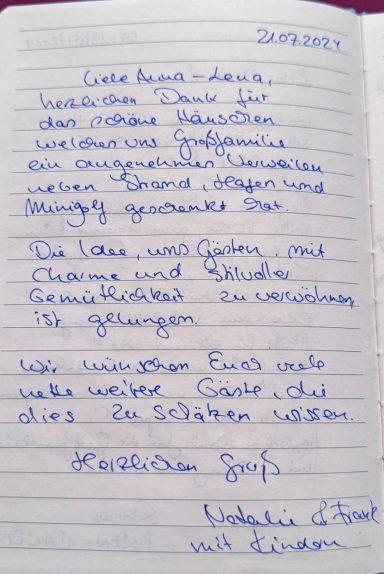 21.07.2024
Liebe Anna-Lena,
herzlichen Dank für
das schöne Häuschen
welches uns Großfamilie
ein angenehmes Verweilen
neben Strand, Hafen und
Minigolf geschenkt hat.
Die Idee, uns Gästen mit
Charme und stilvoller
Gemütlichkeit zu verwöhnen
ist gelungen.
Wir wünschen Euch viele
nette weitere Gäste, die
dies zu schätzen wissen.
Herzlichen Gruß
Natalie & Frank
mit Kindern